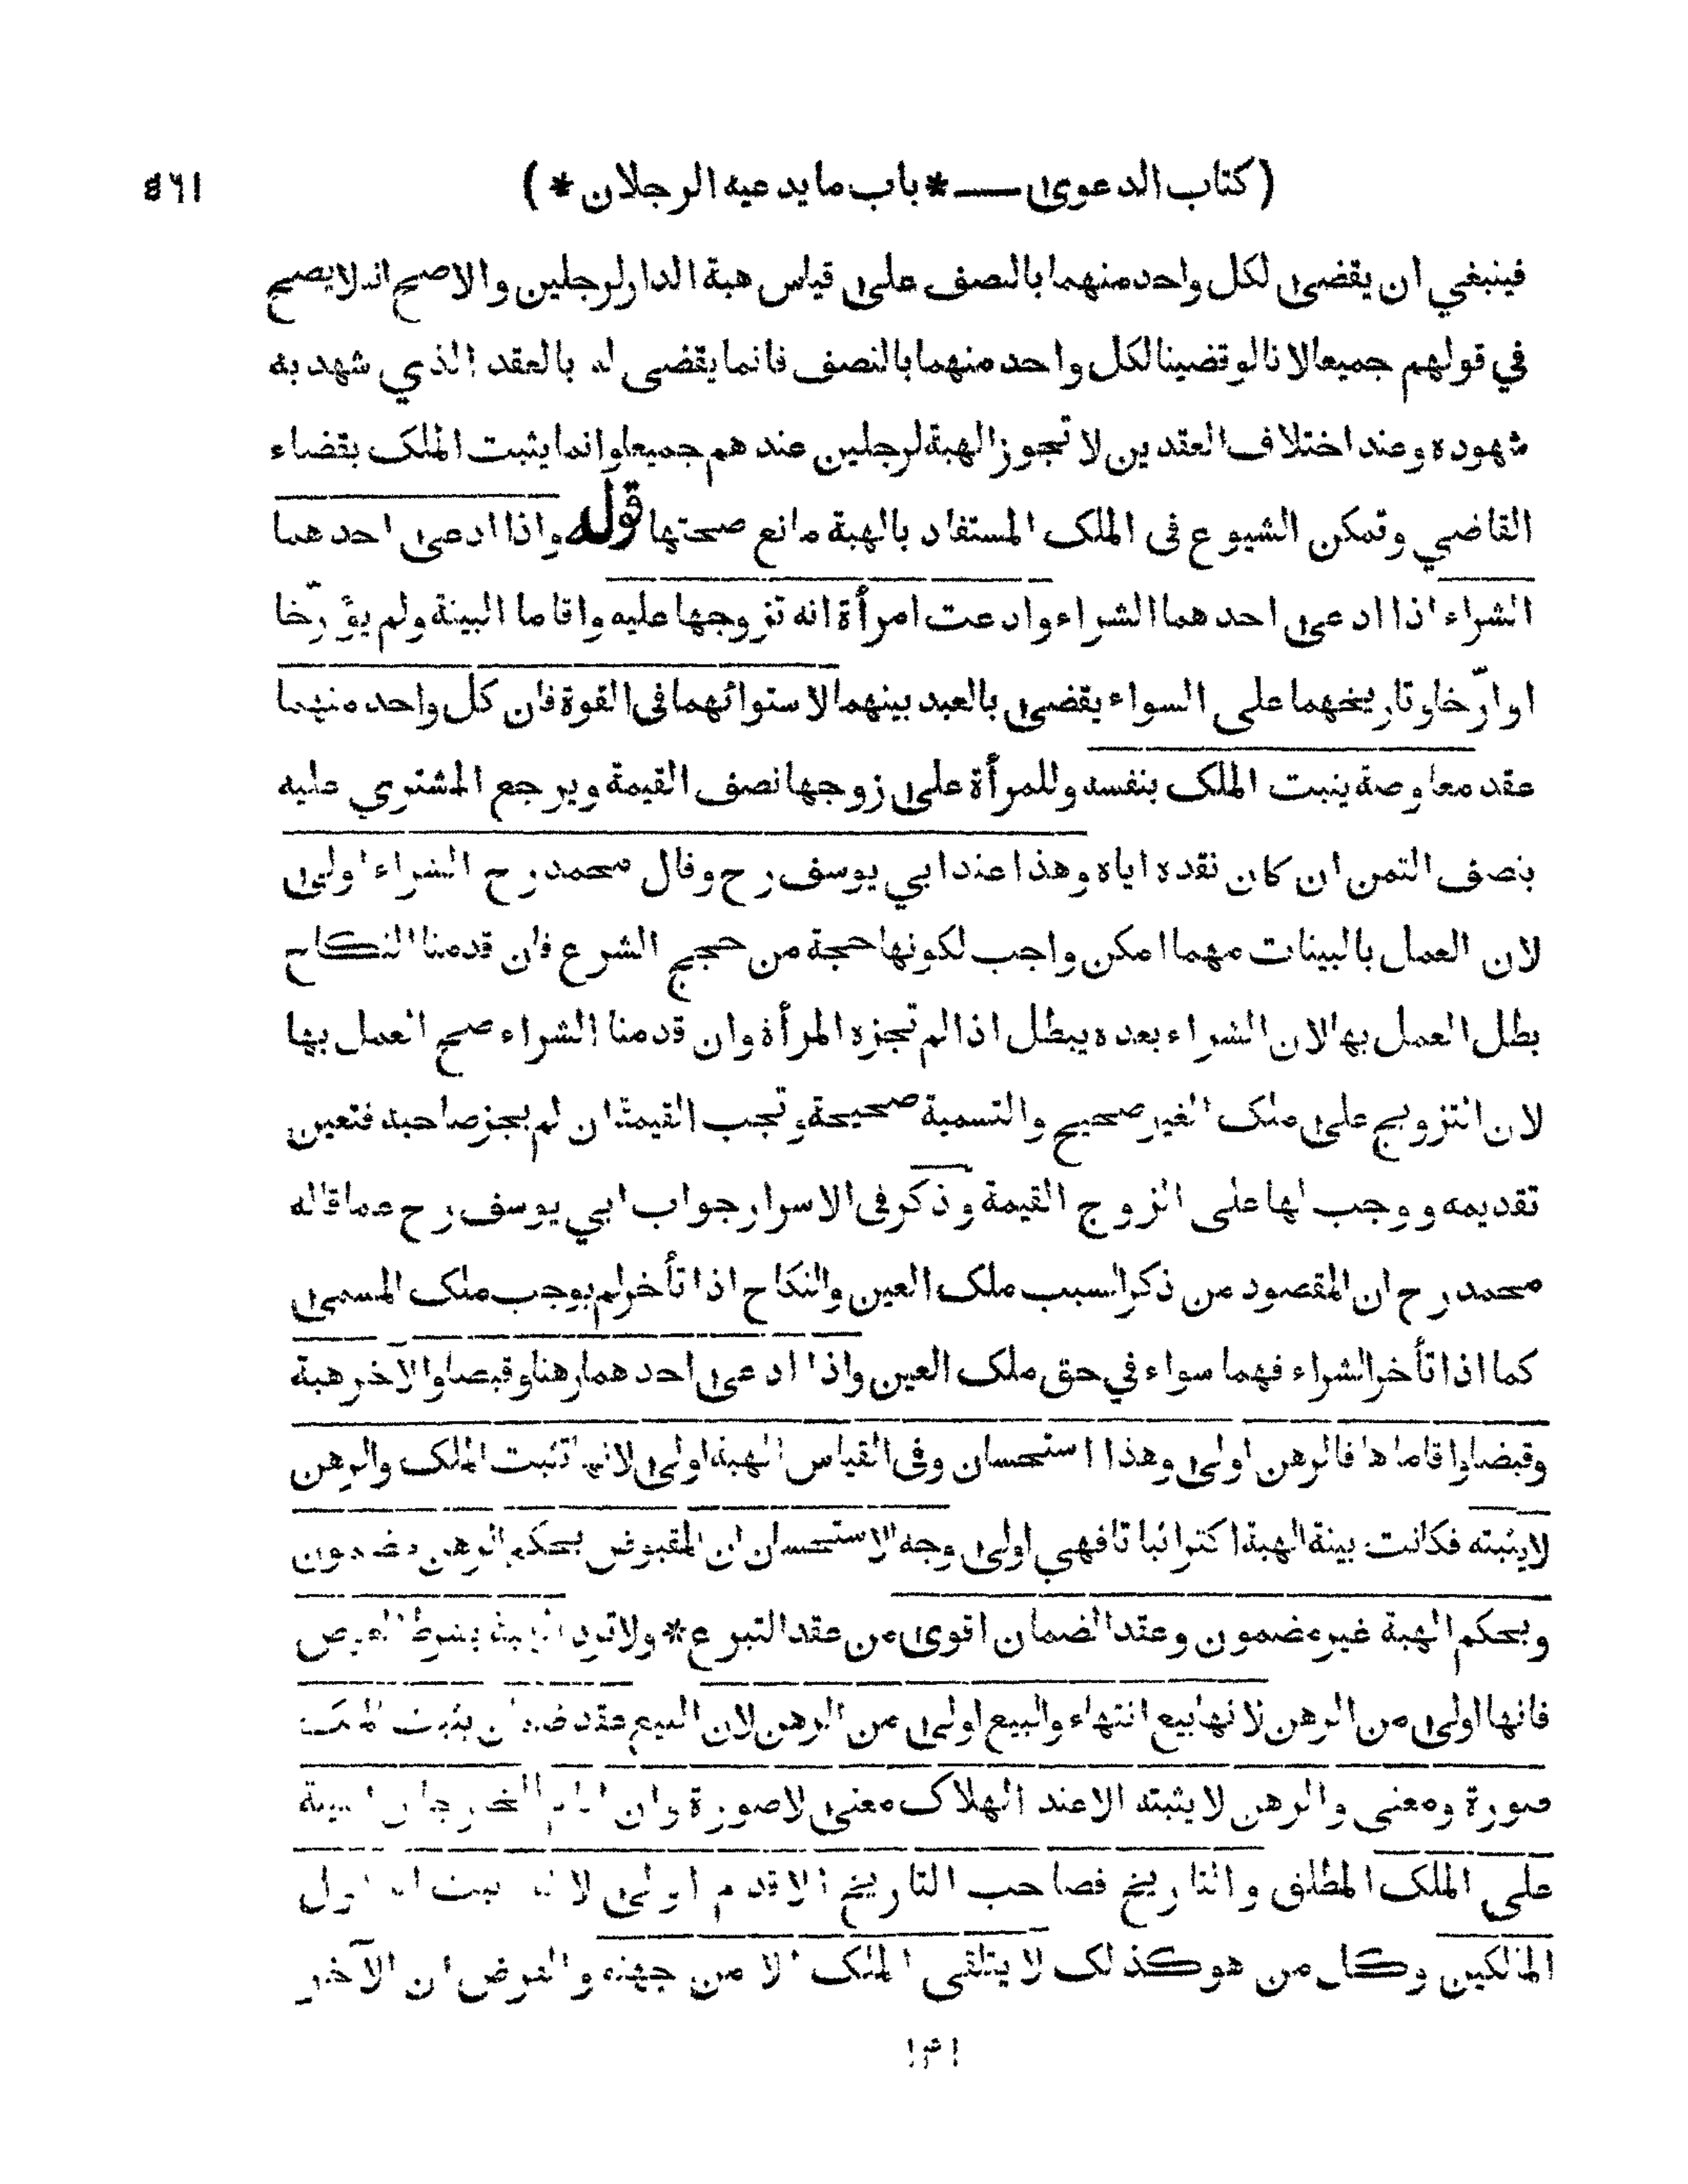 (كتاب الدعوى — * باب ما يدعيه الرجلان *)
فينبغي ان يقضى لكل واحد منهما بالنصف على قياس هبة الدار لرجلين والاصح انه لا يصح
في قولهم جميعا لانا لو قضينا لكل واحد منهما بالنصف فانما يقضى له بالعقد الذي شهد به
شهوده وعند اختلاف العقدين لا تجوز الهبة لرجلين عندهم جميعا وانما يثبت الملك بقضاء
القاضي وتمكن الشيوع في الملك المستفاد بالهبة مانع صحتها قوله واذا ادعى احدهما
الشراء اذا ادعى احدهما الشراء وادعت امرأة انه تزوجها عليه واقاما البينة ولم يؤرّخا
او ارّخا وتاريخهما على السواء يقضى بالعبد بينهما لاستوائهما في القوة فان كل واحد منهما
عقد معاوضة يثبت الملك بنفسه وللمرأة على زوجها نصف القيمة ويرجع المشتري عليه
بنصف الثمن ان كان نقده اياه وهذا عند ابي يوسف رح وقال محمد رح الشراء اولى
لان العمل بالبينات مهما امكن واجب لكونها حجة من حجج الشرع فان قدمنا النكاح
بطل العمل بها لان الشراء بعده يبطل اذا لم تجزه المرأة وان قدمنا الشراء صح العمل بها
لان التزويج على ملك الغير صحيح والتسمية صحيحة وتجب القيمة ان لم يجز صاحبه فتعين
تقديمه ووجب لها على الزوج القيمة وذكر في الاسرار جواب ابي يوسف رح عما قاله
محمد رح ان المقصود من ذكر السبب ملك العين والنكاح اذا تأخر لم يوجب ملك المسمى
كما اذا تأخر الشراء فهما سواء في حق ملك العين واذا ادعى احدهما رهنا وقبضا والآخر هبة
وقبضا واقاماها فالرهن اولى وهذا استحسان وفي القياس الهبة اولى لانها تثبت الملك والرهن
لا يثبته فكانت بينة الهبة اكثر اثباتا فهي اولى وجه الاستحسان ان المقبوض بحكم الرهن مضمون
وبحكم الهبة غير مضمون وعقد الضمان اقوى من عقد التبرع * ولا ترد الهبة بشرط العوض
فانها اولى من الرهن لانها بيع انتهاء والبيع اولى من الرهن لان البيع عقد ضمان يثبت الملك
صورة ومعنى والرهن لا يثبته الا عند الهلاك معنى لا صورة وان اقام الخارجان البينة
على الملك المطلق والتاريخ فصاحب التاريخ الاقدم اولى لانه اثبت انه اول
المالكين وكل من هو كذلك لا يتلقى الملك الا من جهته والفرض ان الآخر